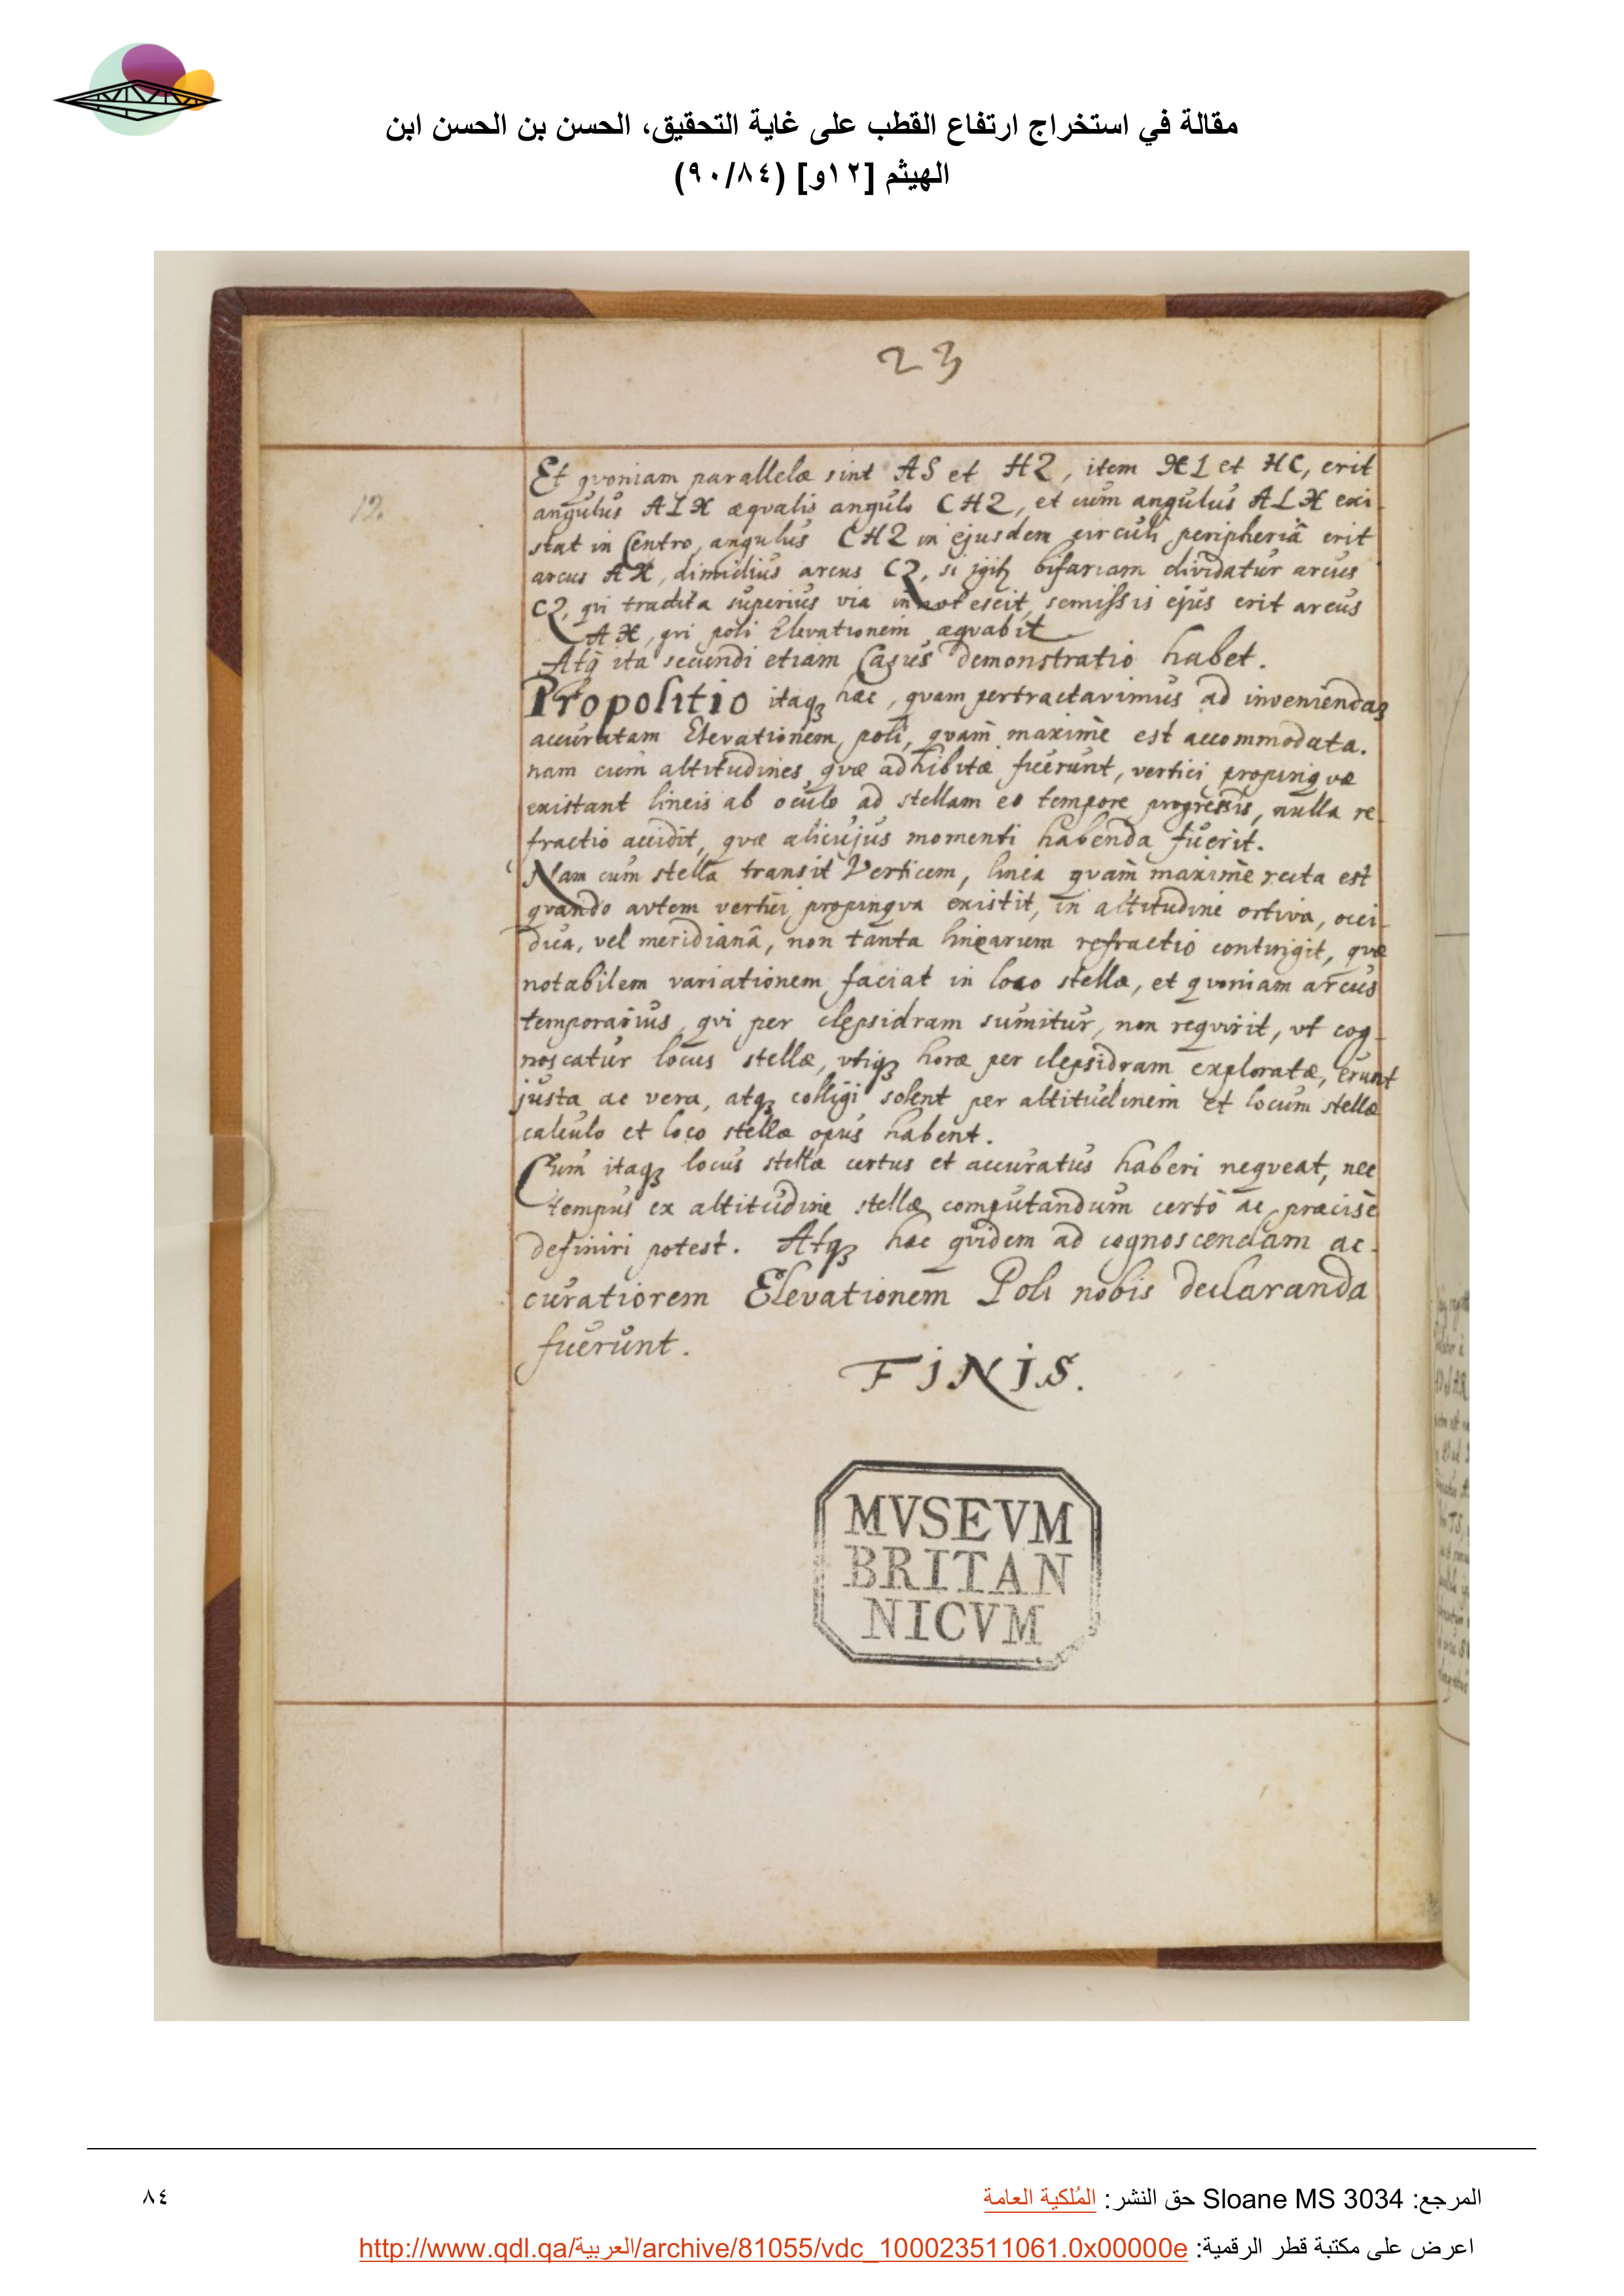 مقالة في استخراج ارتفاع القطب على غاية التحقيق، الحسن بن الحسن ابن
الهيثم [١٢و] (٩٠/٨٤)
23
12
Et qvoniam parallelæ sint AS et HZ, item XL et HC, erit
angulus ALX æqvalis angulo CHZ, et cum angulus ALX exi-
stat in Centro, angulus CHZ in ejusdem circuli peripheriâ erit
arcus AX, dimidius arcus CZ, si igitr bifariam dividatur arcus
CZ, qvi tradita superius via innotescit, semissis ejus erit arcus
AX, qvi poli Elevationem æqvabit
Atq ita secundi etiam Casus demonstratio habet.
Propositio itaqз hæc, qvam pertractavimus ad inveniendaз
accuratam Elevationem poli, qvam maximè est accommodata.
nam cum altitudines qvæ adhibitæ fuerunt, vertici propinqvæ
existant lineis ab oculo ad stellam eo tempore progressis, nulla re
fractio accidit, qvæ alicujus momenti habenda fuerit.
Nam cum stella transit Verticem, linea qvàm maximè recta est
qvando avtem vertici propinqva existit, in altitudine ortiva, occi-
dua, vel meridianâ, non tanta linearum refractio contingit, qvæ
notabilem variationem faciat in loco stellæ, et qvoniam arcus
temporarius, qvi per clepsidram sumitur, non reqvirit, vt cog-
noscatur locus stellæ, vtiqз horæ per clepsidram exploratæ, erunt
justa ac vera, atqз colligi solent per altitudinem et locum stellæ
calculo et loco stellæ opus habent.
Cum itaqз locus stellæ certus et accuratus haberi neqveat, nec
tempus ex altitudine stellæ computandum certò ac præcisè
definiri potest. Atqз hæc qvidem ad cognoscendam ac-
curatiorem Elevationem Poli nobis declaranda
fuerunt.
FINIS.
MVSEVM
BRITAN
NICVM
المرجع: Sloane MS 3034 حق النشر: المُلكية العامة
٨٤
اعرض على مكتبة قطر الرقمية: http://www.qdl.qa/العربية/archive/81055/vdc_100023511061.0x00000e